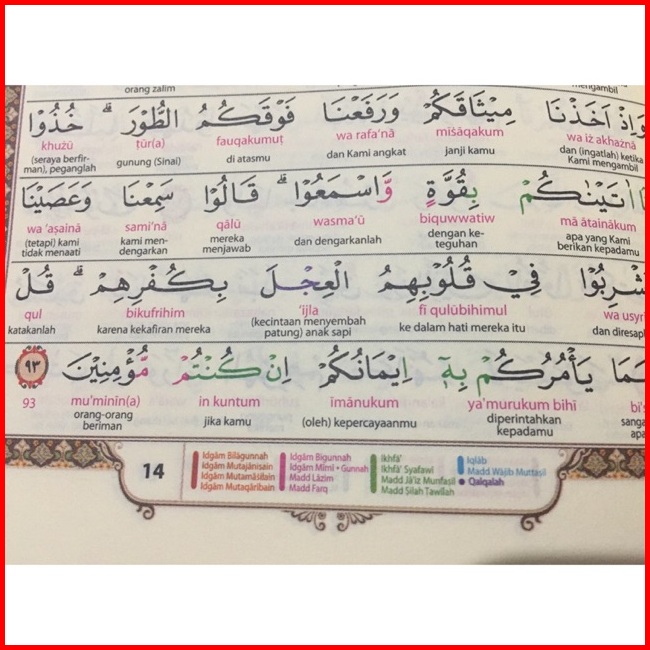 orang zalim mengambil
وَاِذْ اَخَذْنَا مِيْثَاقَكُمْ وَرَفَعْنَا فَوْقَكُمُ الطُّوْرَۗ خُذُوْا
wa iż akhażnā mīṡāqakum wa rafa'nā fauqakumuṭ ṭūr(a) khużū
dan (ingatlah) ketika Kami mengambil janji kamu dan Kami angkat di atasmu gunung (Sinai) (seraya berfirman), peganglah
اٰتَيْنٰكُمْ بِقُوَّةٍ وَّاسْمَعُوْاۗ قَالُوْا سَمِعْنَا وَعَصَيْنَا
mā ātainākum biquwwatiw wasma'ū qālū sami'nā wa 'aṣainā
apa yang Kami berikan kepadamu dengan keteguhan dan dengarkanlah mereka menjawab kami mendengarkan (tetapi) kami tidak menaati
فِيْ قُلُوْبِهِمُ الْعِجْلَ بِكُفْرِهِمْۗ قُلْ
wa usyri fī qulūbihimul 'ijla bikufrihim qul
dan diresap ke dalam hati mereka itu (kecintaan menyembah patung) anak sapi karena kekafiran mereka katakanlah
يَأْمُرُكُمْ بِهٖٓ اِيْمَانُكُمْ اِنْ كُنْتُمْ مُّؤْمِنِيْنَ ٩٣
bi's ya'murukum bihī īmānukum in kuntum mu'minīn(a) 93
diperintahkan kepadamu (oleh) kepercayaanmu jika kamu orang-orang beriman
14
Idgām Bilāgunnah Idgām Bigunnah Ikhfā' Iqlāb
Idgām Mutajānisain Idgām Mīmī • Gunnah Ikhfā' Syafawi Madd Wājib Muttaṣil
Idgām Mutamāṡilain Madd Lāzim Madd Jā'iz Munfaṣil Qalqalah
Idgām Mutaqāribain Madd Farq Madd Ṣilah Ṭawīlah